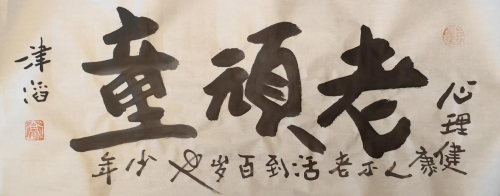 老頑童
心理健康人不老活到百岁也少年
津滔